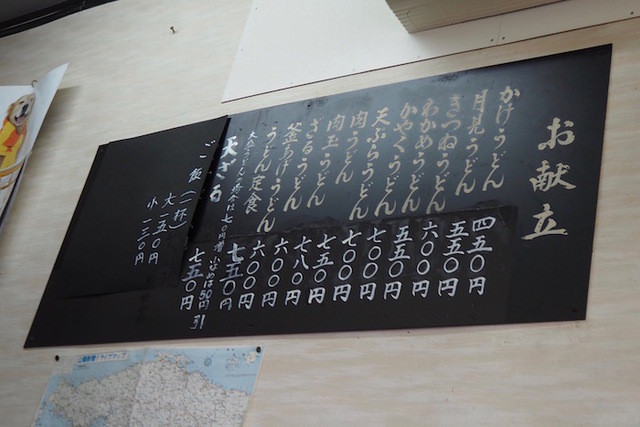 お献立
かけうどん 四五〇円
月見うどん 五五〇円
きつねうどん 六〇〇円
わかめうどん 五五〇円
かやくうどん 七〇〇円
天ぷらうどん 七〇〇円
肉うどん 七五〇円
肉玉うどん 七八〇円
ざるうどん 六〇〇円
釜あげうどん 六〇〇円
うどん定食 七五〇円
大盛うどんの場合は七〇円増 小さめは50円引
天ざる 七五〇円
ご飯(一杯)
大一五〇円
小一三〇円